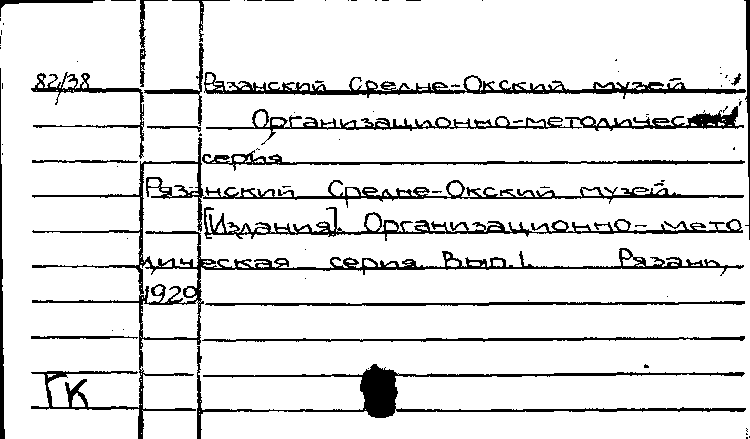 82/38 Рязанский Средне-Окский музей
Организационно-методическая
серия
Рязанский Средне-Окский музей.
[Издания]. Организационно-мето
дическая серия. Вып.1. Рязань,
1929
ГК